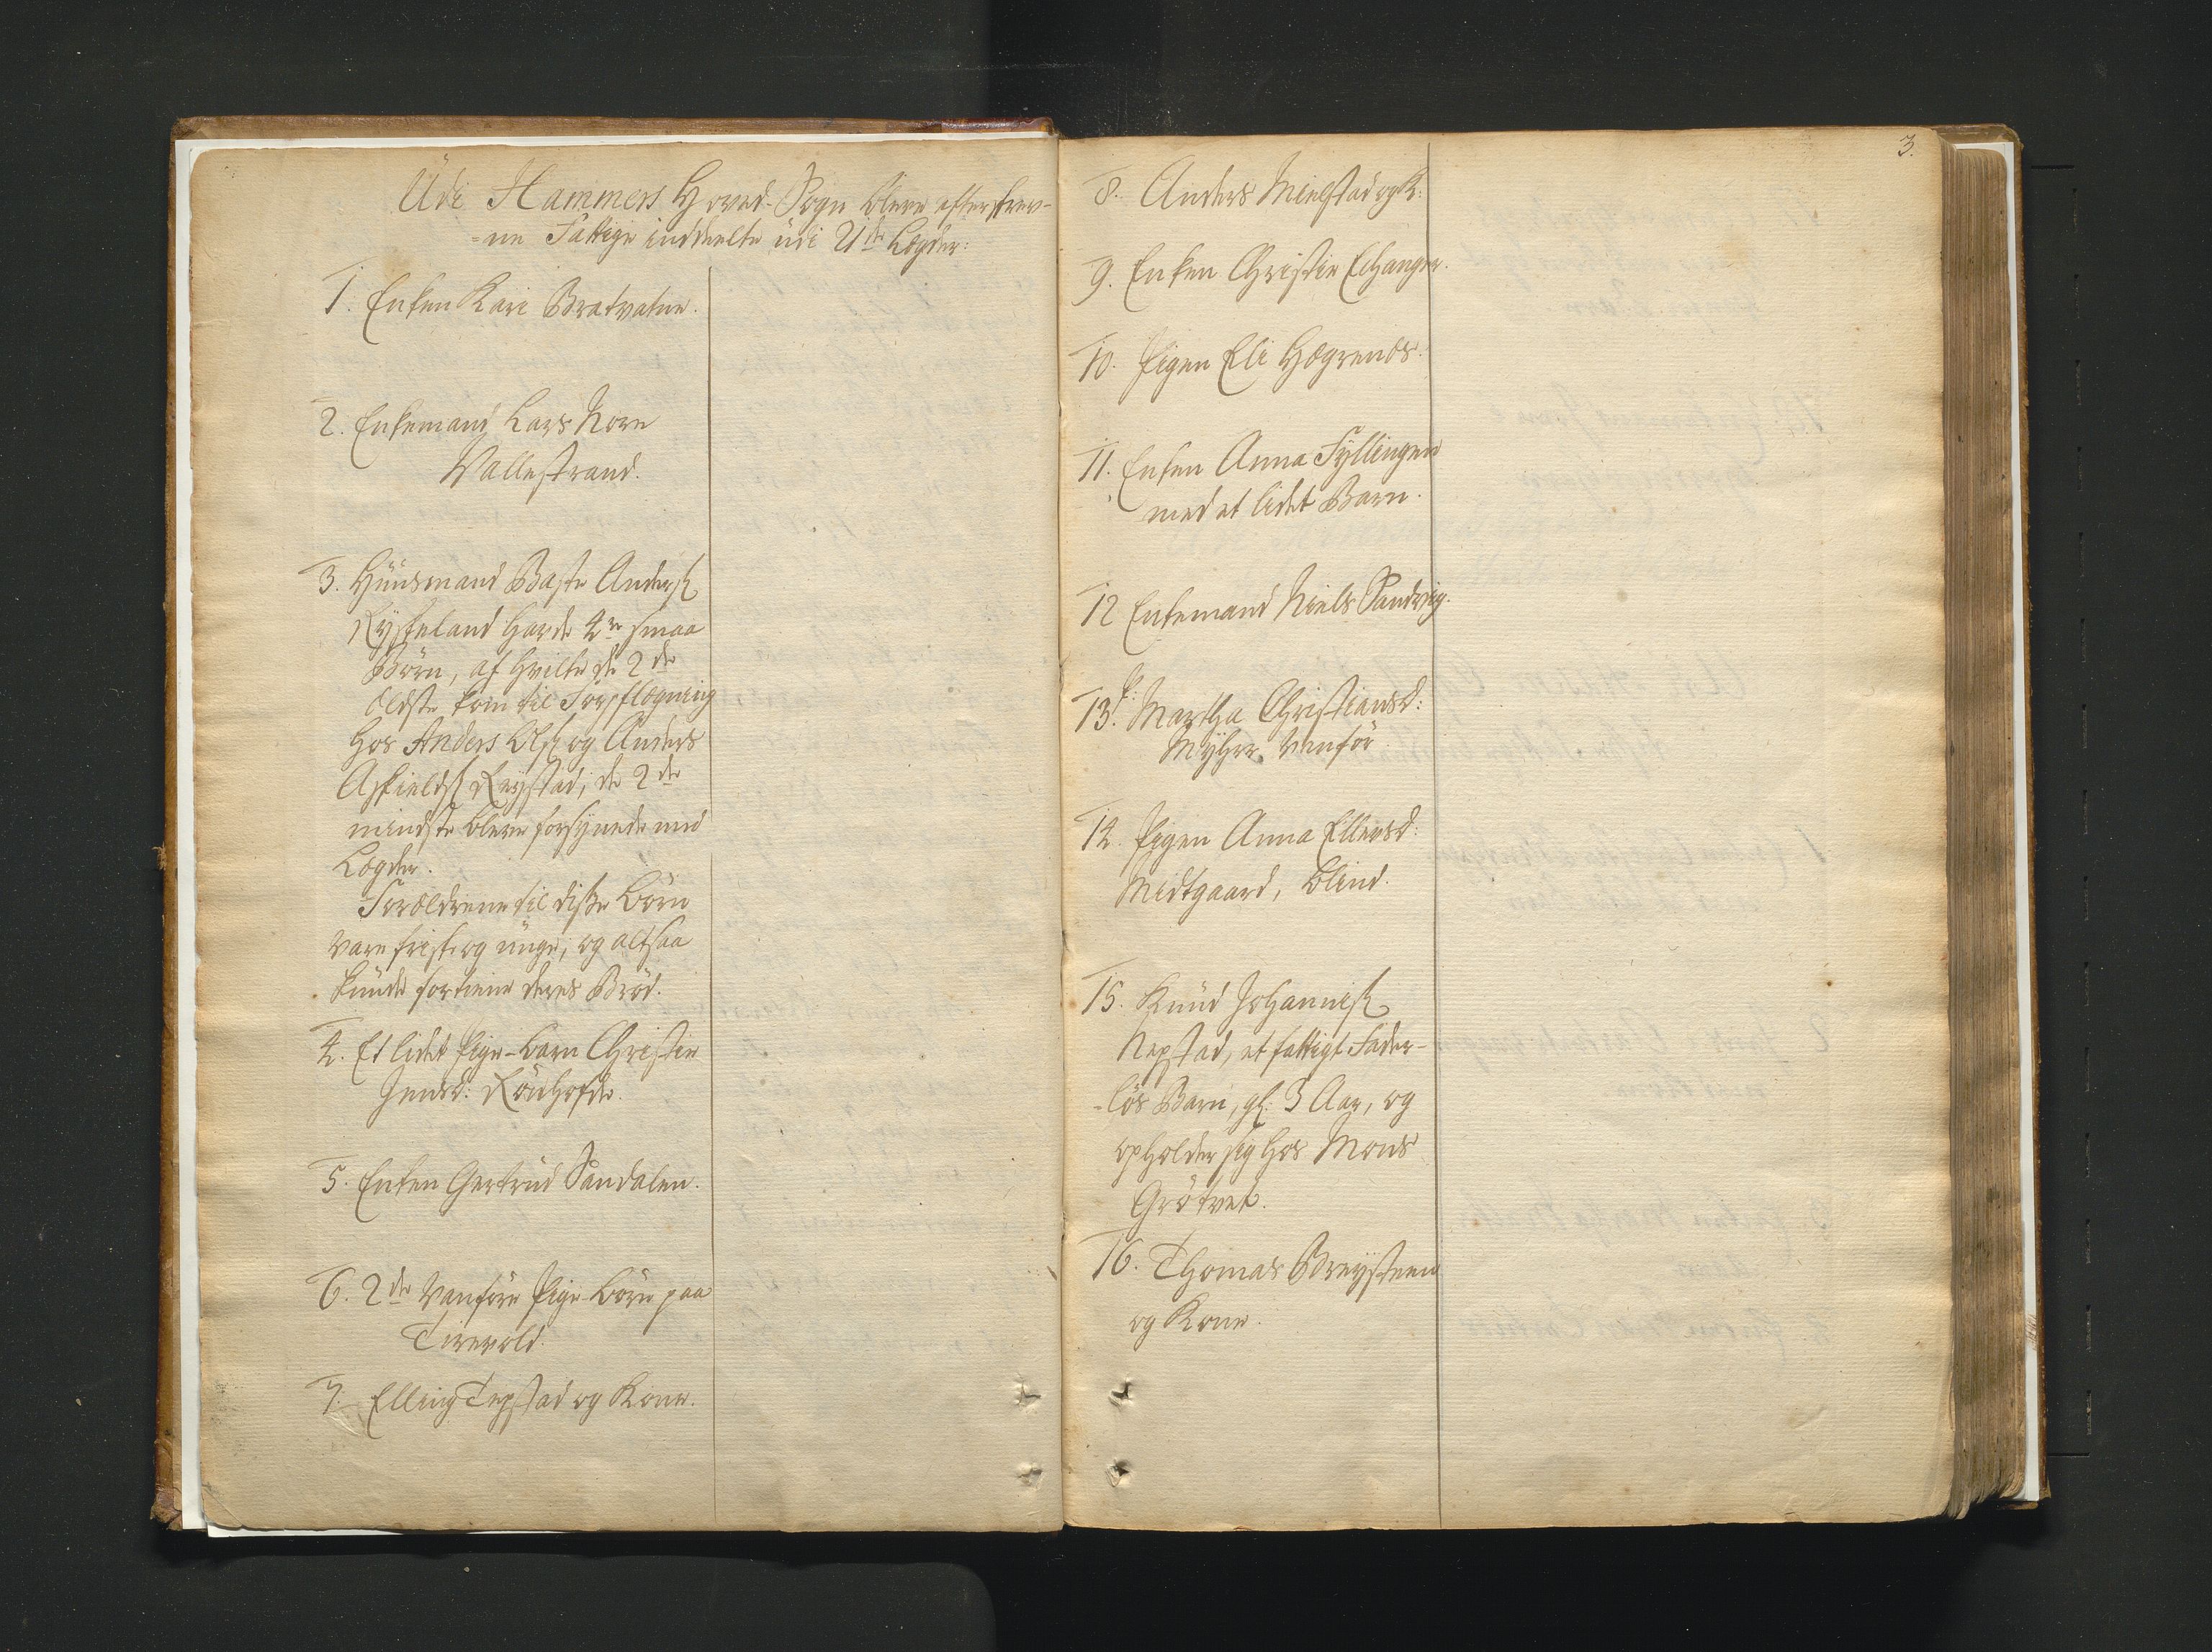 Udi Hammers Hoved-Sogn bleve efterskrev-
=ne Fattige inddeelte udi Lægder:
1. Enken Kari Bratvatne.
2. Enkemand Lars Nore
Vallestrand.
3. Huusmand Baste Anders:
Rysseland havde 4re smaa
Børn, af hvilke de 2de
Eldste kom til Forpflegning
hos Anders Ols: og Anders
Reystad; de 2de
mindste bleve forsynede med
Lægder.
Forældrene til disse Børn
vare friske og unge, og altsaa
kunde fortiene deres Brød.
4. Et lidet Pige-barn Christie
Jensd:
5. Enken Gertrud Sandalen.
6. 2de Vanføre Pige-børn paa
Tirevold.
7. Elling Tepstad og Kone.
3.
8. Anders Mielstad og K:
9. Enken Christie Echanger.
10. Pigen Eli Hægrenæs.
11. Enken Anna Fyllingen
med et lidet Barn.
12 Enkemand Niels Sandvig.
13. P: Martha Christiansd:
Myhre, Vanför
14. Pigen Anna Ellensd:
Midtgaard, blind.
15. Knud Johannis:
Nepstad, et fattigt Fader-
-løs Barn, gl: 3 Aar, og
opholder sig hos Mons
Grøtvet.
16. Thomas Breysteen
og Kone.